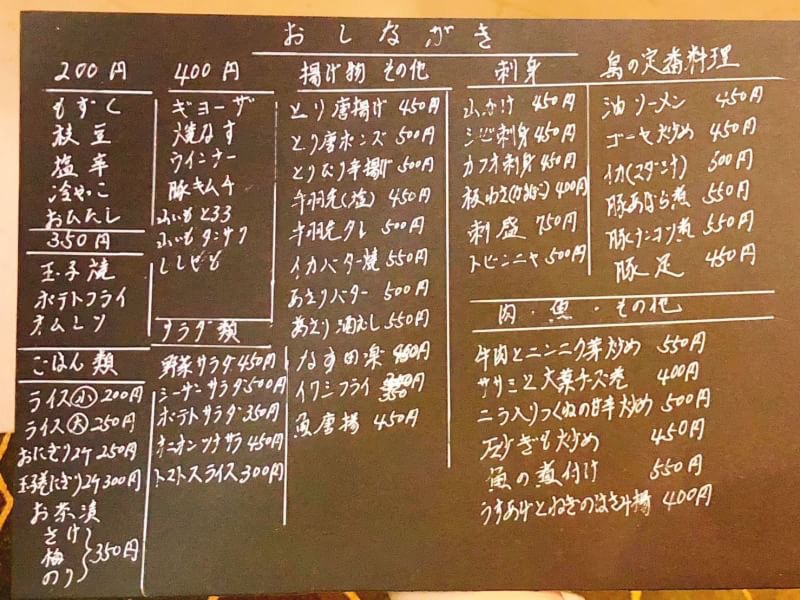 おしながき
200円
もずく
枝豆
塩辛
冷やっこ
おひたし
350円
玉子焼
ポテトフライ
オムレツ
ごはん類
ライス小 200円
ライス大 250円
おにぎり2ケ 250円
玉子巻にぎり2ケ 300円
お茶漬
さけ
梅
のり
350円
400円
ギョーザ
焼なす
ウインナー
豚キムチ
ふいもとろろ
ふいもタンサク
ししゃも
サラダ類
野菜サラダ 450円
シーザーサラダ 500円
ポテトサラダ 350円
オニオンツナサラ 450円
トマトスライス 300円
揚げ物 その他
とり唐揚げ 450円
とり唐ポンズ 500円
とりピリ辛揚げ 500円
手羽先(塩) 450円
手羽先タレ 500円
イカバター焼 550円
あさりバター 500円
あさり酒むし 550円
なす田楽 450円
イワシフライ 350円
魚唐揚 450円
刺身
山かけ 450円
シビ刺身 450円
カツオ刺身 450円
板わさ(かまぼこ) 400円
刺盛 750円
トビンニャ 500円
島の定番料理
油ソーメン 450円
ゴーヤ炒め 450円
イカ(スダコ汁) 500円
豚あばら煮 550円
豚ナンコツ煮 550円
豚足 450円
肉・魚・その他
牛肉とニンニク芽炒め 550円
ササミと大葉チーズ巻 400円
ニラ入りつくねの甘辛炒め 500円
砂ぎも炒め 450円
魚の煮付け 550円
うすあげとねぎのはさみ揚 400円